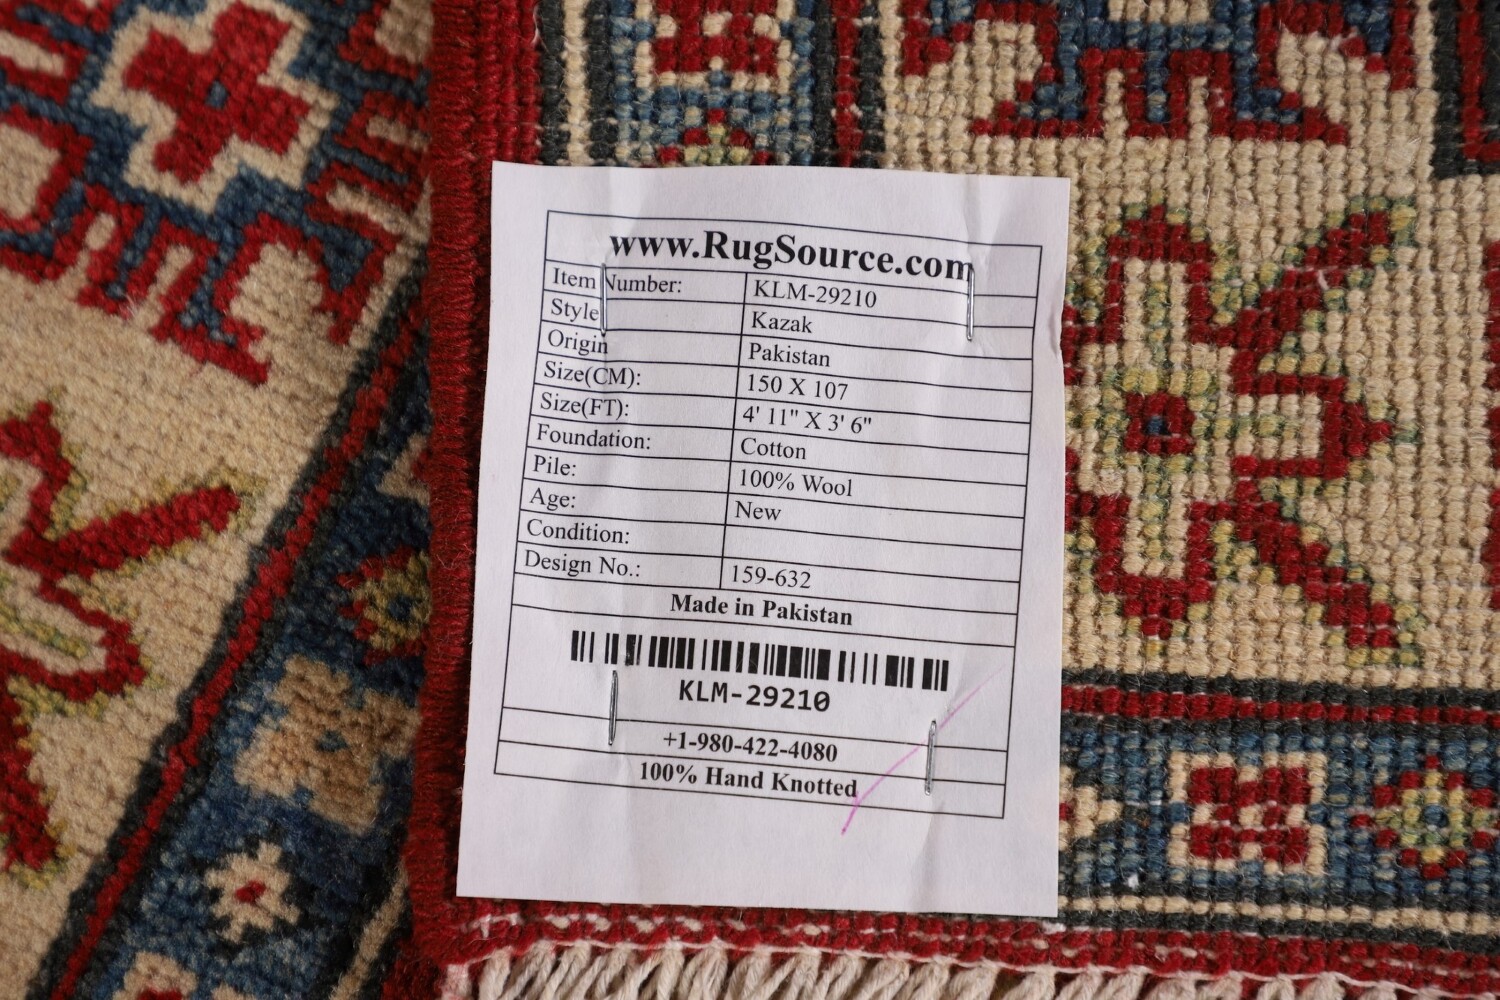 www.RugSource.com
Item Number: KLM-29210
Style Kazak
Origin Pakistan
Size(CM): 150 X 107
Size(FT): 4' 11" X 3' 6"
Foundation: Cotton
Pile: 100% Wool
Age: New
Condition:
Design No.: 159-632
Made in Pakistan
KLM-29210
+1-980-422-4080
100% Hand Knotted